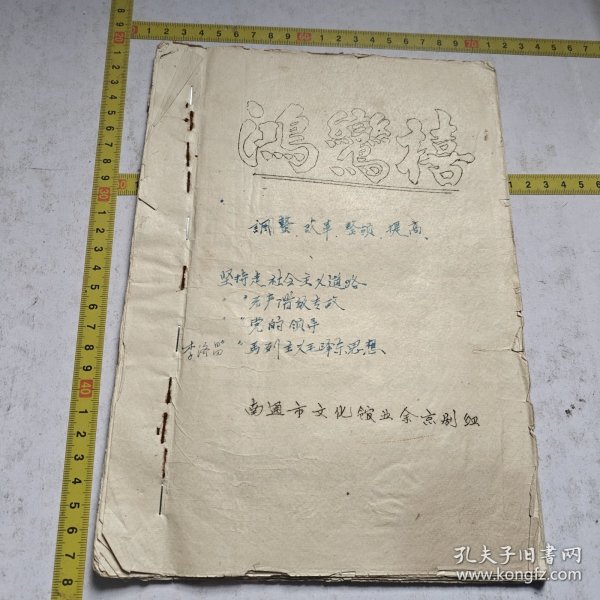 鸿鸾禧
調整、改革、整顿、提高、
坚持走社会主义道路
" 无产阶级专政
" 党的领导
" 马列主义毛泽东思想
南通市文化馆业余京剧组
孔夫子旧书网
www.kongfz.com